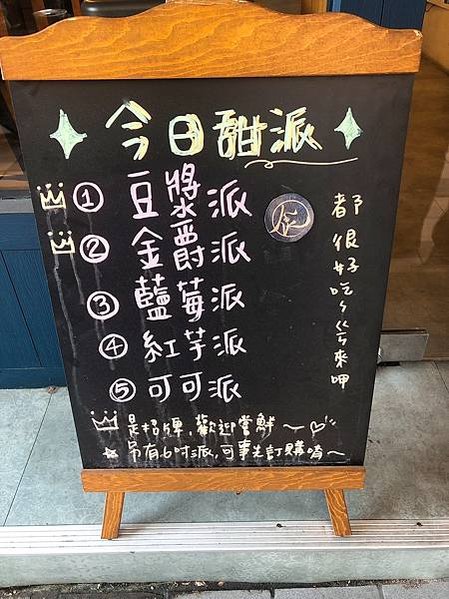 今日甜派
① 豆漿派
② 金爵派
③ 藍莓派
④ 紅芋派
⑤ 可可派
都很好吃ㄅㄣ來呷
是招牌,歡迎嘗鮮～♡
另有6吋派,可事先訂購唷～